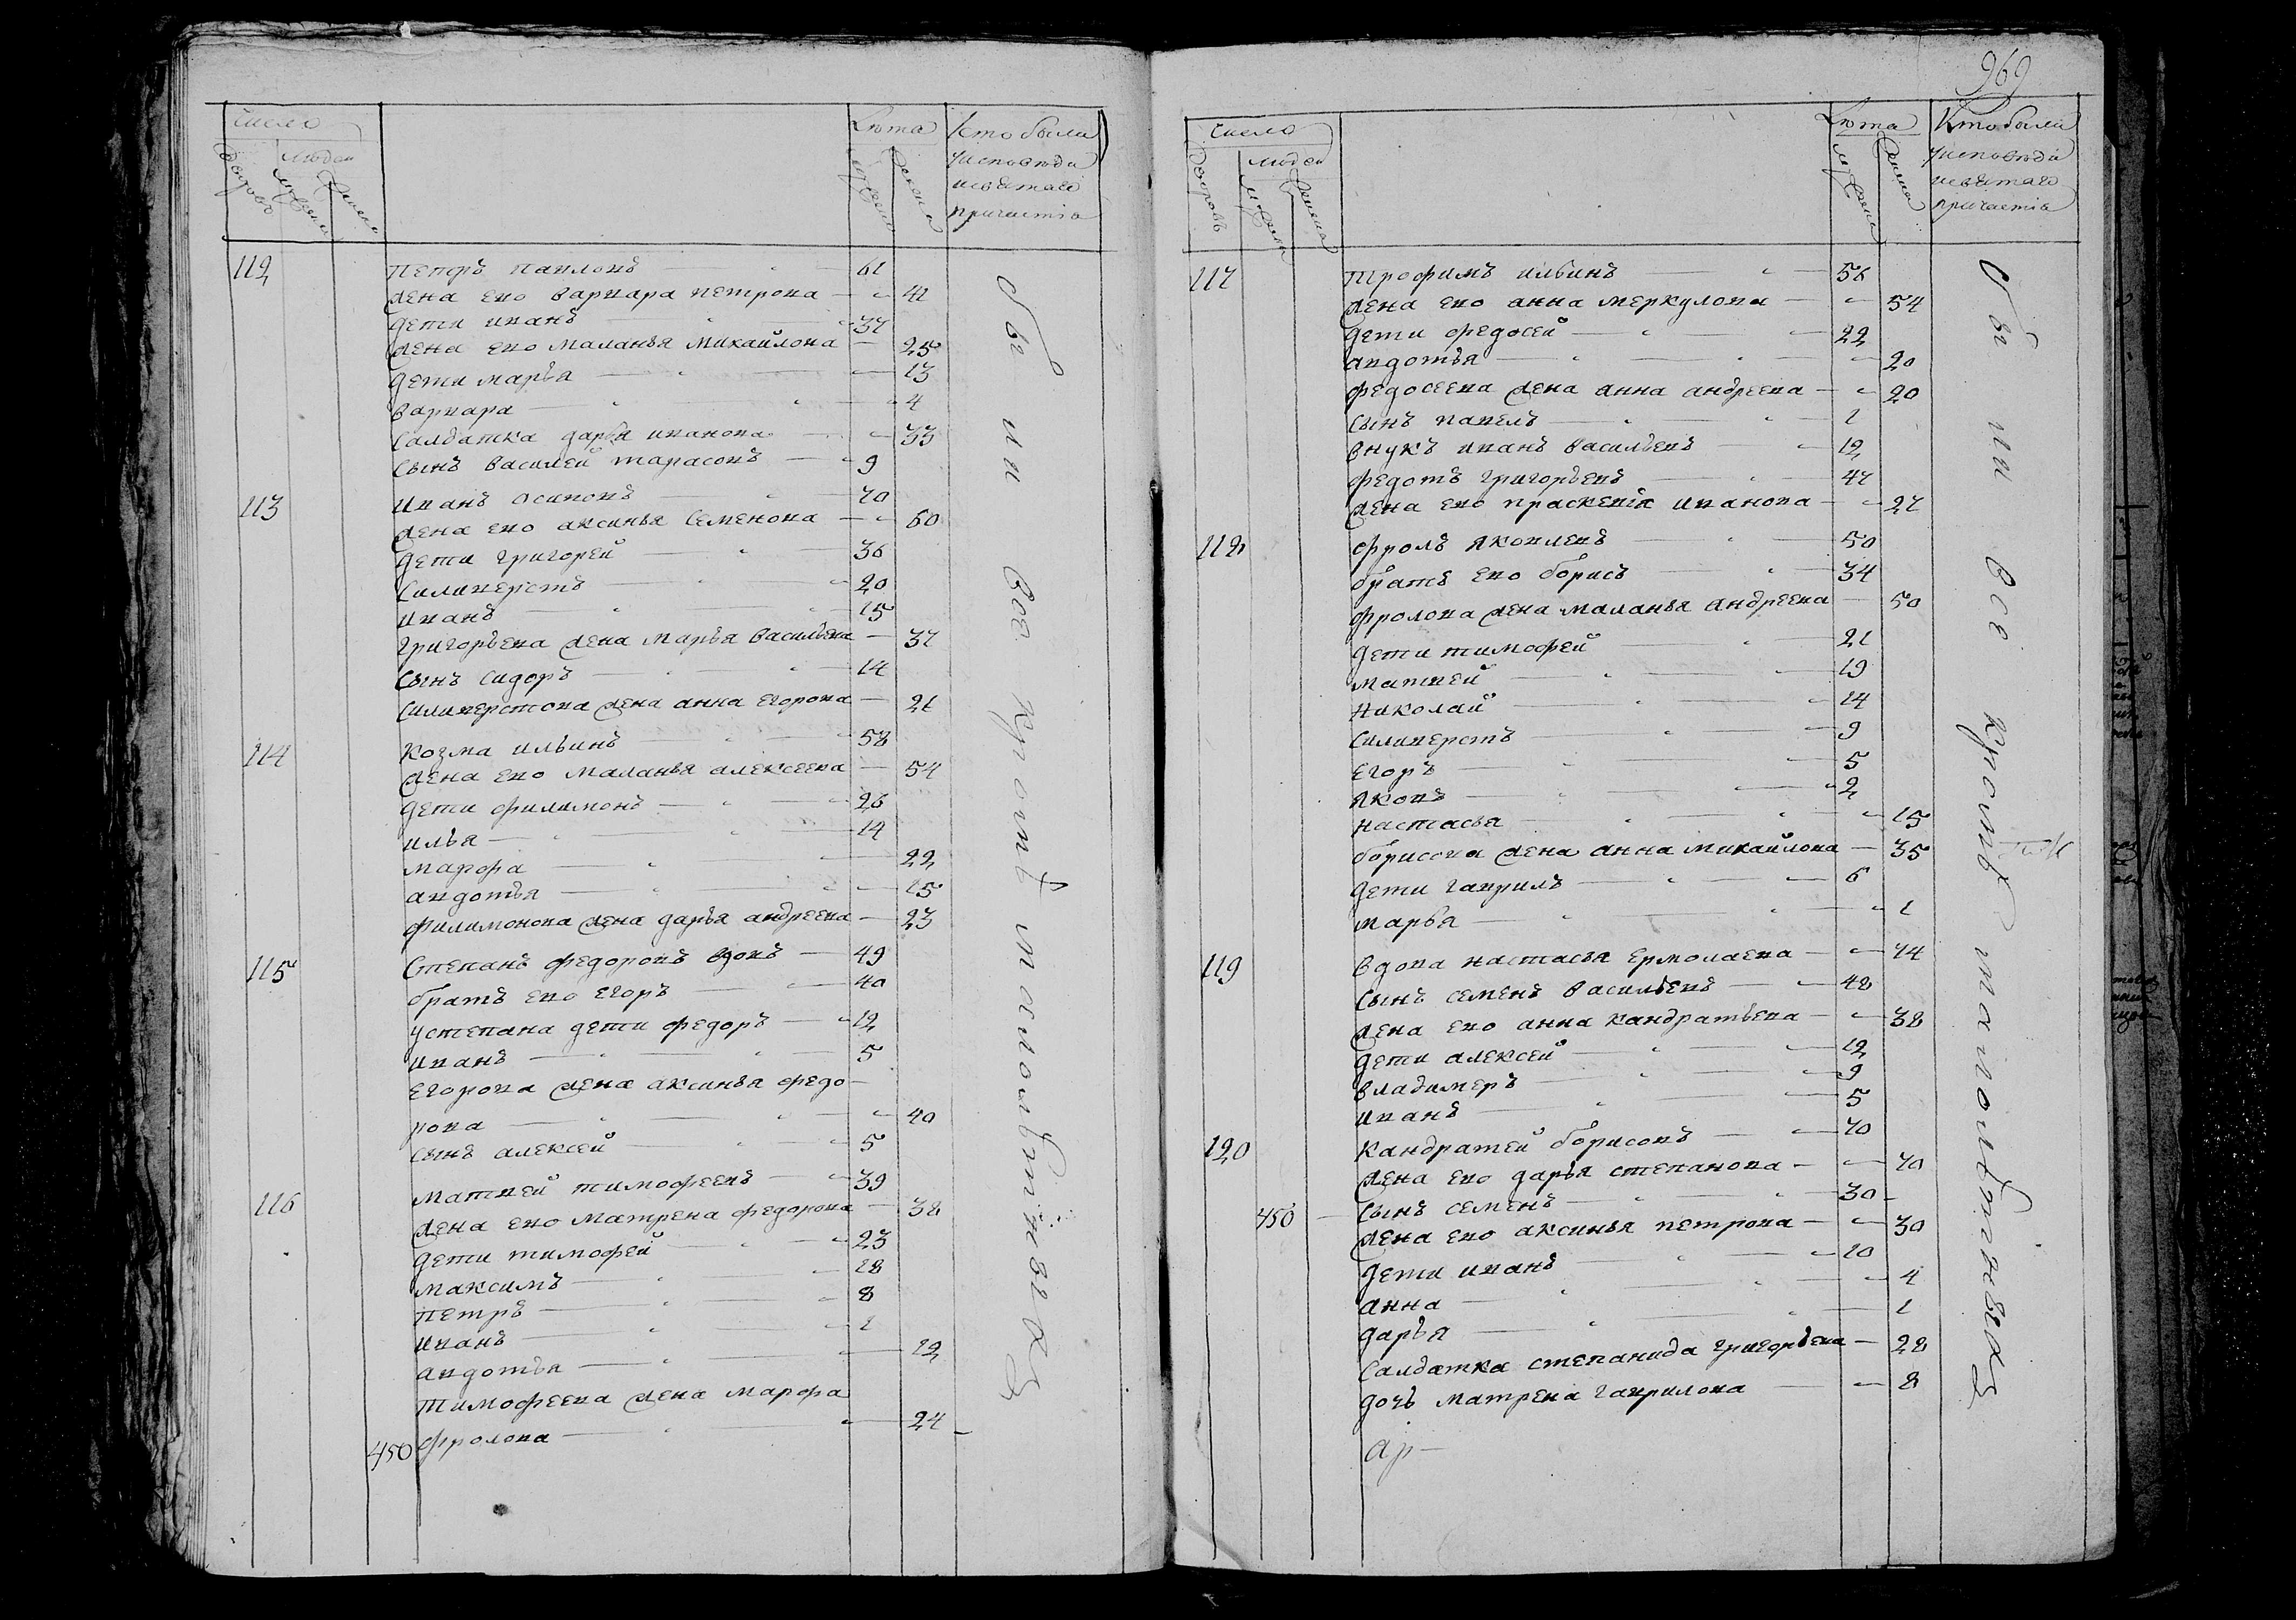 число
Лѣта
Кто были
людей
уисповѣди
исвятаго
причастія
дворовъ
мужеска
женска
мужеска
женска
112 Петръ павловъ 61
жена ево варвара петрова 42
дети иванъ 37
жена ево маланья михайлова 25
дети марья 13
варвара 4
салдатка дарья иванова 33
сынъ василей тарасовъ 9
113 иванъ осиповъ 70
жена ево аксинья семенова 60
дети григорей 36
силиверстъ 20
иванъ 15
григорьева жена марья васильева 37
сынъ сидоръ 14
силиверстова жена анна егорова 21
114 козма ильинъ 58
жена ево маланья алексеева 54
дети филимонъ 26
илья 14
марфа 22
авдотья 15
филимонова жена дарья андреева 23
115 степанъ федоровъ вдовъ 49
братъ ево егоръ 40
устепана дети федоръ 12
иванъ 5
егорова жена аксинья федо
рова 40
сынъ алексей 5
116 матвей тимофеевъ 39
жена ево матрена федорова 38
дети тимофей 23
максимъ 18
петръ 8
иванъ 1
авдотья 12
тимофеева жена марфа
фролова 24
450
были все кромѣ малолѣтныхъ
969
число
Лѣта
Кто были
людей
уисповѣди
исвятаго
причастія
дворовъ
мужеска
женска
мужеска
женска
117 трофимъ ильинъ 56
жена ево анна меркулова 54
дети федосей 22
авдотья 20
федосеева жена анна андреева 20
сынъ павелъ 1
внукъ иванъ васильевъ 12
федотъ григорьевъ 47
жена ево праскевія иванова 27
118 фролъ яковлевъ 50
братъ ево борисъ 34
фролова жена маланья андреева 50
дети тимофей 21
матвей 19
николай 14
силиверстъ 9
егоръ 5
яковъ 2
настасья 15
борисова жена анна михайлова 35
дети гаврилъ 6
марья 1
119 вдова настасья ермолаева 74
сынъ семенъ васильевъ 48
жена ево анна кандратьева 38
дети алексей 12
владимеръ 9
иванъ 5
120 кандратей борисовъ 70
жена ево дарья степанова 70
450 сынъ семенъ 30
жена ево аксинья петрова 30
дети иванъ 10
анна 4
дарья 1
салдатка степанида григорьева 28
дочь матрена гаврилова 8
ар
были все кромѣ малолѣтныхъ